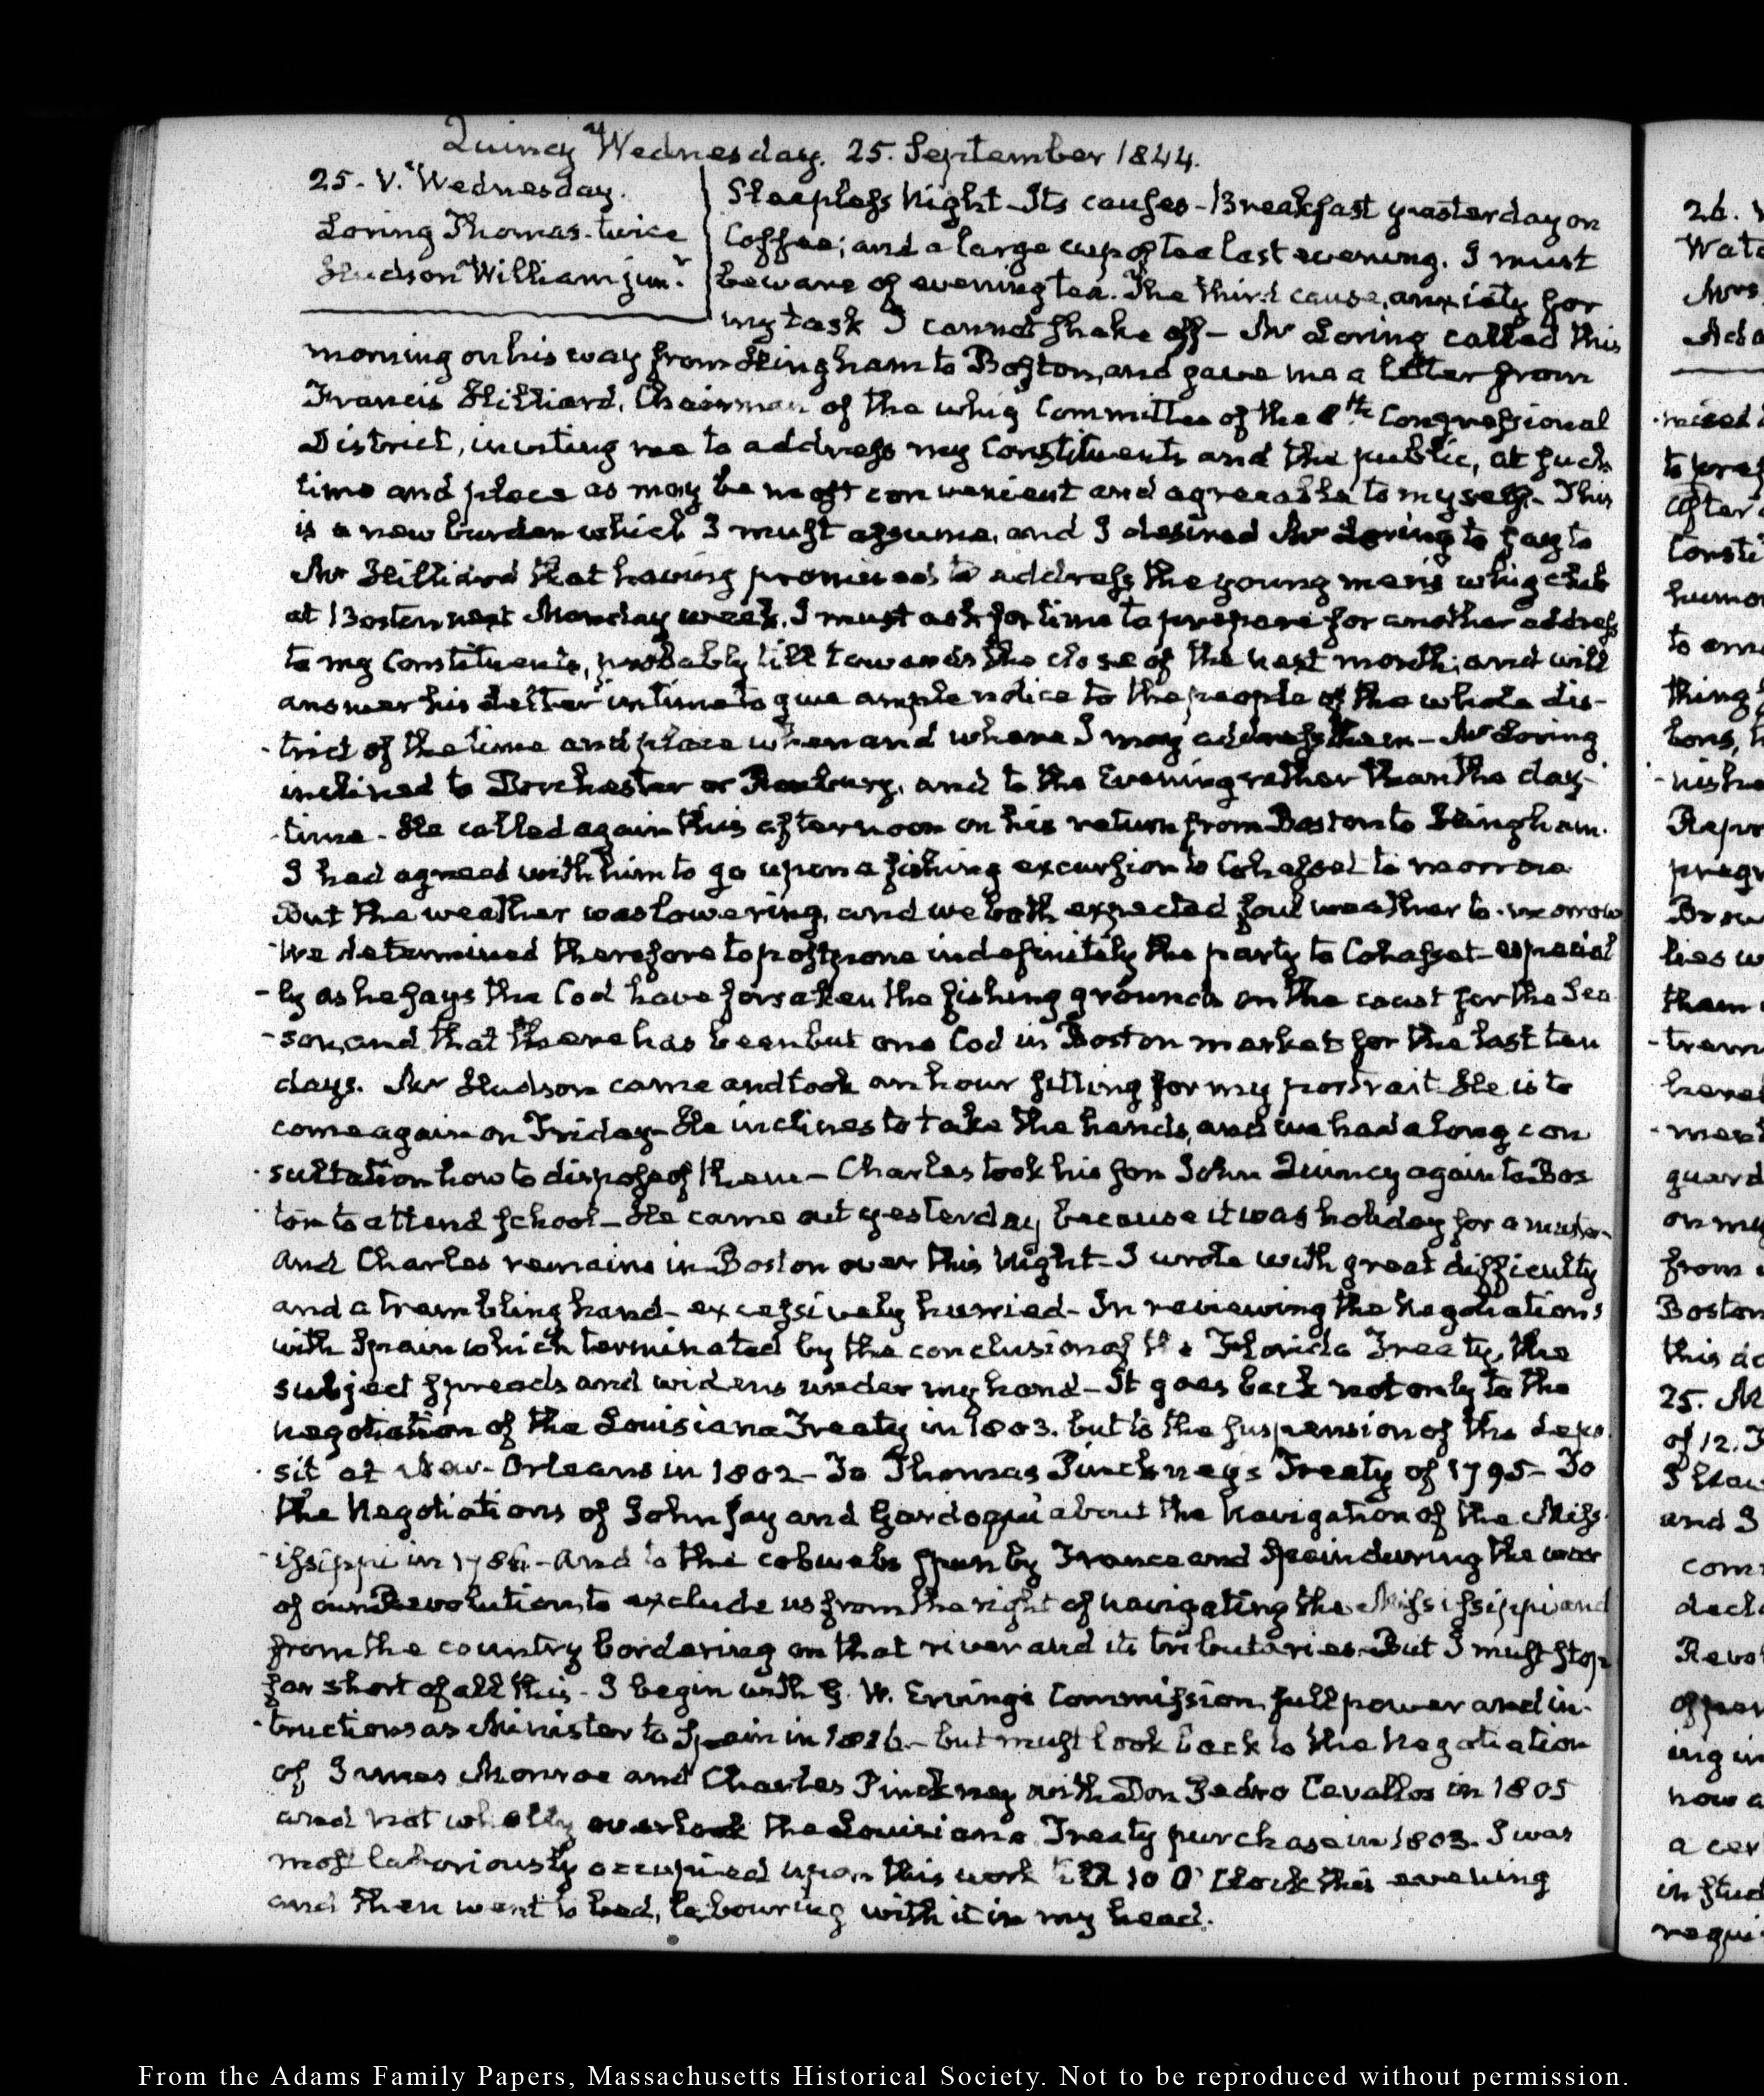 Quincy Wednesday. 25. September 1844.
25. V. Wednesday.
Loring Thomas. twice
Hudson William junr.
Sleepless Night - Its causes - Breakfast yesterday on
Coffee; and a large cup of tea last evening. I must
beware of evening tea. The third cause, anxiety for
my task I cannot shake off - Mr Loring called this
morning on his way from Hingham to Boston, and gave me a letter from
Francis Hilliard, Chairman of the whig Committee of the 8th. Congressional
District, inviting me to address my Constituents and the public, at such
time and place as may be most convenient and agreeable to myself. This
is a new burden which I must assume, and I desired Mr Loring to say to
Mr Hilliard that having promised to address the young men's whig club
at Boston next Monday week, I must ask for time to prepare for another address
to my Constituents, probably till towards the close of the next month; and will
answer his letter in time to give ample notice to the people of the whole dis-
-trict of the time and place when and where I may address them - Mr Loring
inclined to Dorchester or Roxbury, and to the Evening rather than the day-
-time - He called again this afternoon on his return from Boston to Hingham.
I had agreed with him to go upon a fishing excursion to Cohasset to morrow
But the weather was lowering, and we both expected foul weather to-morrow
We determined therefore to postpone indefinitely the party to Cohasset - especial
-ly as he says the Cod have forsaken the fishing grounds on the coast for the Sea
-son, and that there has been but one Cod in Boston market for the last ten
days. Mr Hudson came and took an hour sitting for my portrait. He is to
come again on Friday - He inclines to take the hands, and we had a long con
-sultation how to dispose of them - Charles took his son John Quincy again to Bos
-ton to attend school - He came out yesterday because it was holiday for a muster -
and Charles remains in Boston over this Night - I wrote with great difficulty
and a trembling hand - excessively hurried - In reviewing the Negotiations
with Spain which terminated by the conclusion of the Florida Treaty, the
subject spreads and widens under my hand - It goes back not only to the
negotiation of the Louisiana Treaty in 1803. but to the suspension of the depo
-sit at New-Orleans in 1802 - To Thomas Pinckney's Treaty of 1795 - To
the Negotiations of John Jay and Gardoqui about the Navigation of the Miss
-issippi in 1786 - and to the cobwebs spun by France and Spain during the war
of our Revolution to exclude us from the right of navigating the Mississippi and
from the country bordering on that river and its tributaries. But I must stop
far short of all this - I begin with G. W. Erving's Commission, full power and in-
-tructions as Minister to Spain in 1816 - but must look back to the Negotiation
of James Monroe and Charles Pinckney with Don Pedro Cevallos in 1805
and not wholly overlook the Louisiana Treaty purchase in 1803. I was
most laboriously occupied upon this work till 10 O'Clock this evening
and then went to bed, labouring with it in my head.
26.
Mrs
raised
to
after
humor
to
thing
Brow
lies w
them
guard
on my
from
Boston
this
25. M
of 12. J
and I
ing in
now a
a cer
in stud
requi
From the Adams Family Papers, Massachusetts Historical Society. Not to be reproduced without permission.